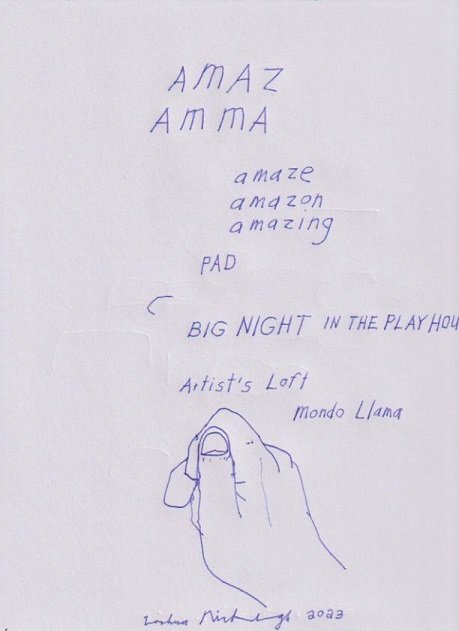 AMAZ
AMMA
amaze
amazon
amazing
PAD
BIG NIGHT IN THE PLAYHOU
Artist's Loft
mondo Llama
Joshua 2023